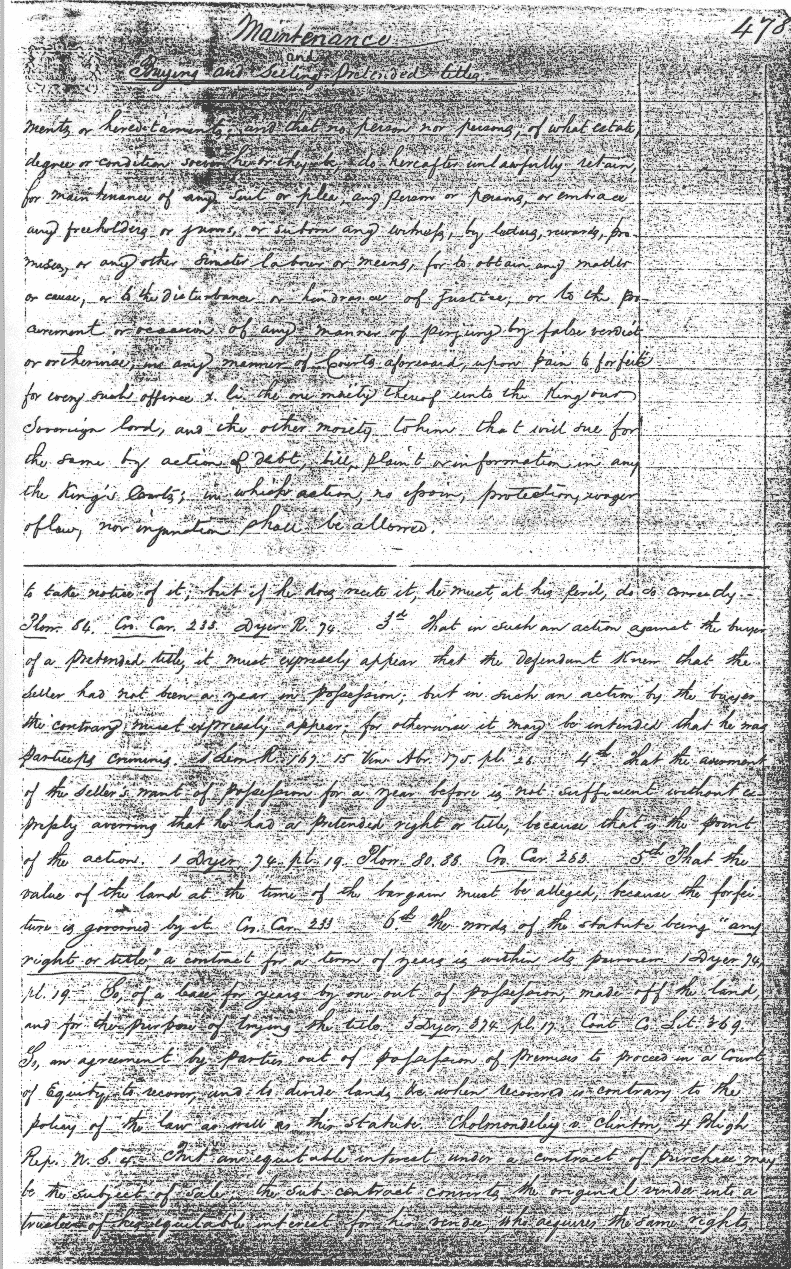 478
Maintenance
and
Buying and Selling Pretended titles.
ments or hereditaments; and that no person nor persons, of what estate,
degree or condition soever he or they be do hereafter unlawfully retain,
for maintenance of any suit or plea, any person or persons, or embrace
any freeholders or jurors, or suborn any witness, by letters, rewards, pro-
mises, or any other sinister labour or means, for to obtain any matter
or cause, or to the disturbance or hindrance of justice, or to the pro-
curement or occasion of any manner of perjury by false verdict
or otherwise, in any manner of Courts aforesaid, upon pain to forfeit
for every such offence x. li. the one moiety thereof unto the King our
Sovereign lord, and the other moiety to him that will sue for
the same by action of debt, bill, plaint or information in any
the King's Courts; in which action, no essoin, protection, wager
of law, nor injunction shall be allowed.
to take notice of it; but if he does recite it, he must, at his peril, do so correctly.
Plow. 84. Cro. Car. 233. Dyer R. 74. 3rd That in such an action against the buyer
of a pretended title, it must expressly appear that the defendant knew that the
seller had not been a year in possession; but in such an action by the buyer
the contrary must expressly appear; for otherwise it may be intended that he was
particeps criminis. 1 Leon R. 167. 15 Vin. Abr. 175. pl. 26. 4th That the averment
of the seller's want of possession for a year before is not sufficient without ex-
pressly averring that he had a pretended right or title, because that is the point
of the action. 1 Dyer 74. pl. 19. Plow. 80. 88. Cro. Car. 233. 5th That the
value of the land at the time of the bargain must be alleged, because the forfei-
ture is governed by it. Cro. Car. 233 6th the words of the statute being "any
right or title," a contract for a term of years is within its purview. 1 Dyer 74,
pl. 19. So, of a lease for years by one out of possession, made off the land,
and for the purpose of trying the title. 3 Dyer, 374. pl. 17. Cont. Co. Lit. 369.
So, an agreement by parties out of possession of premises to proceed in a Court
of Equity, to recover, and to divide lands &c when recovered is contrary to the
policy of the law as well as this statute. Cholmondeley v. Clinton, 4 Bligh
Rep. N. S. 4. But an equitable interest under a contract of purchase may
be the subject of sale, the sub contract converts the original vendee into a
trustee of his equitable interest for his vendee, who acquires the same rights